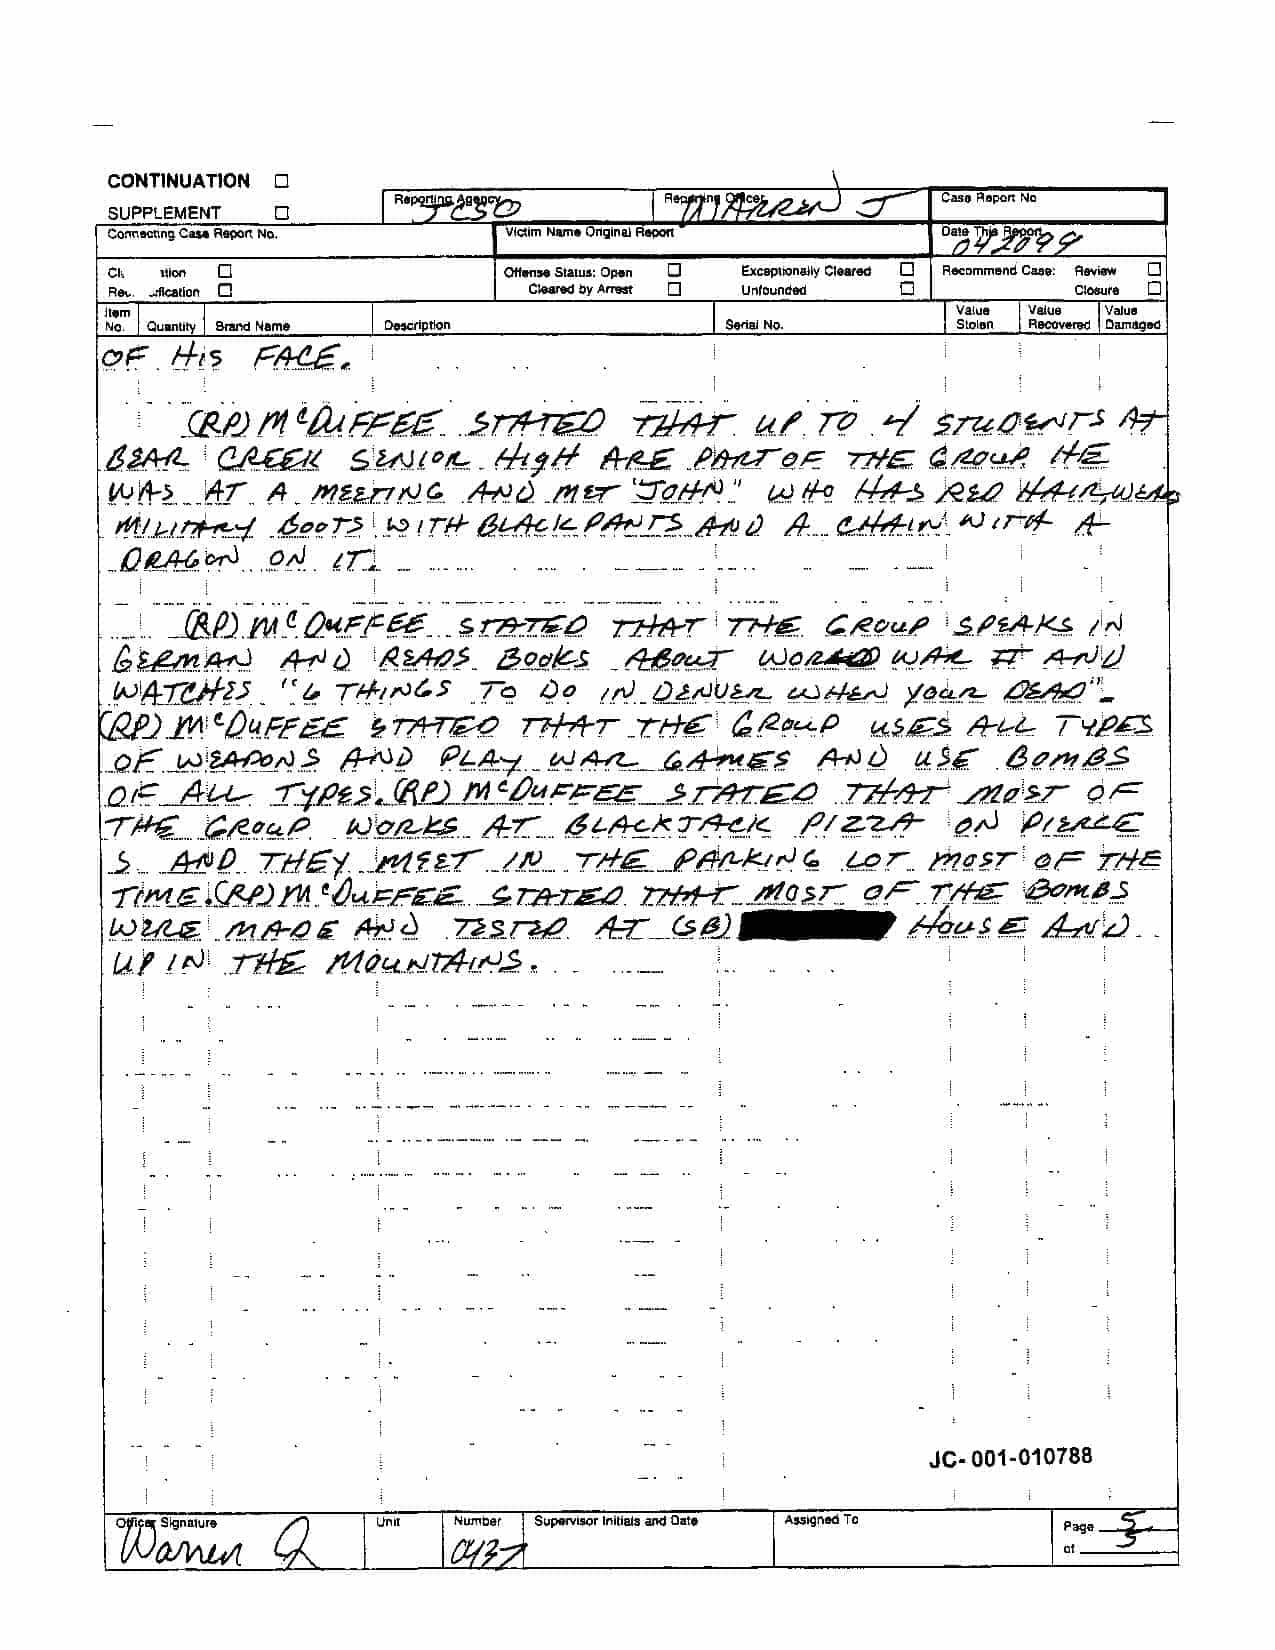 CONTINUATION
SUPPLEMENT
Reporting Agency JCSO
Reporting Officer WARREN J
Case Report No
Connecting Case Report No.
Victim Name Original Report
Date This Report 042099
Offense Status: Open
Exceptionally Cleared
Recommend Case: Review
Cleared by Arrest
Unfounded
Closure
Item No. Quantity Brand Name Description Serial No. Value Stolen Value Recovered Value Damaged
OF HIS FACE.
(RP) McDUFFEE STATED THAT UP TO 4 STUDENTS AT
BEAR CREEK SENIOR HIGH ARE PART OF THE GROUP. HE
WAS AT A MEETING AND MET "JOHN" WHO HAS RED HAIR, WEARS
MILITARY BOOTS WITH BLACK PANTS AND A CHAIN WITH A
DRAGON ON IT.
(RP) McDUFFEE STATED THAT THE GROUP SPEAKS IN
GERMAN AND READS BOOKS ABOUT WORLD WAR II AND
WATCHES "6 THINGS TO DO IN DENVER WHEN YOUR DEAD".
(RP) McDUFFEE STATED THAT THE GROUP USES ALL TYPES
OF WEAPONS AND PLAY WAR GAMES AND USE BOMBS
OF ALL TYPES. (RP) McDUFFEE STATED THAT MOST OF
THE GROUP WORKS AT BLACKJACK PIZZA ON PIERCE
S. AND THEY MEET IN THE PARKING LOT MOST OF THE
TIME. (RP) McDUFFEE STATED THAT MOST OF THE BOMBS
WERE MADE AND TESTED AT (SB) HOUSE AND
UP IN THE MOUNTAINS.
JC-001-010788
Officer Signature Warren J
Unit
Number 0437
Supervisor Initials and Date
Assigned To
Page 5
of 5